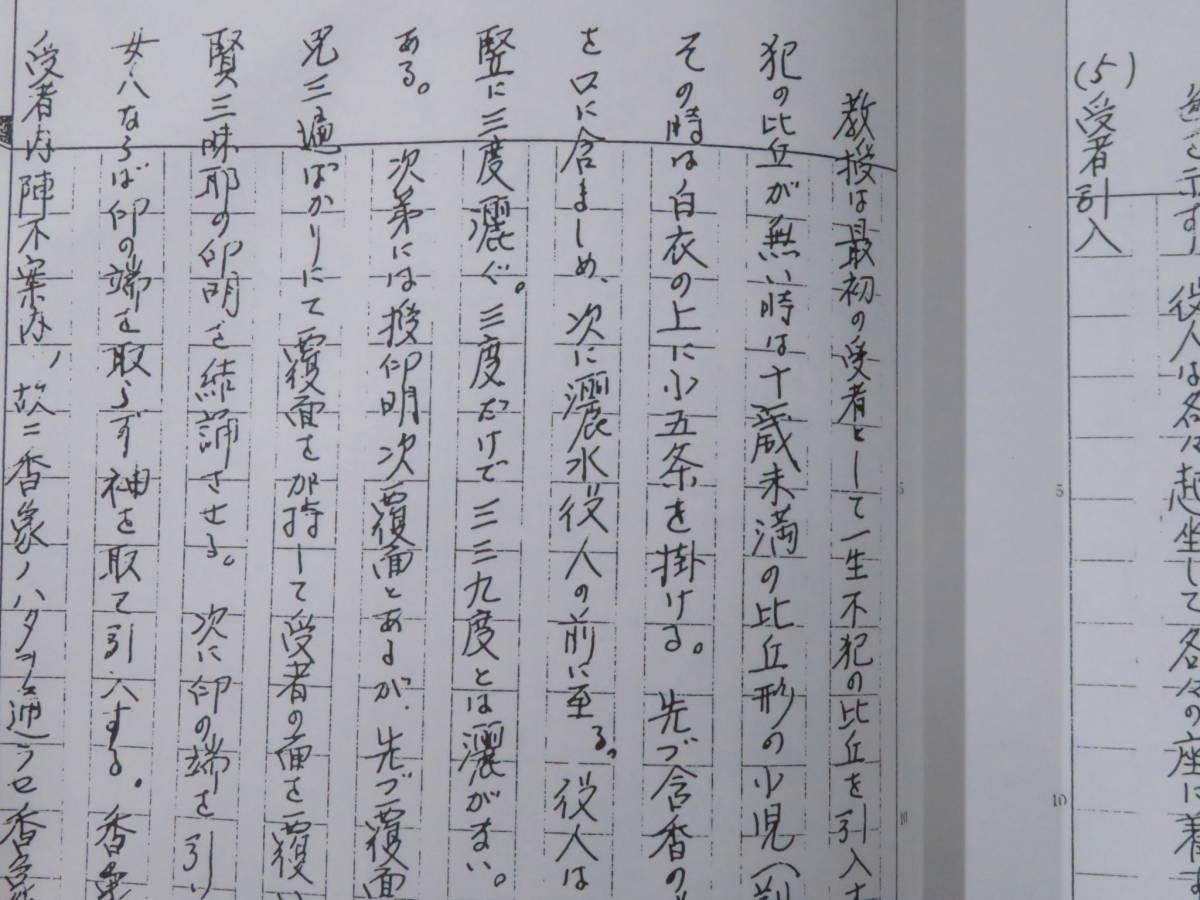 色を示す 役人は各々起坐して各々の座に着す
(5)受者引入
教授は最初の受者として一生不犯の比丘を引入す
犯の比丘が無い時は十歳未満の比丘形の小児(前
その時は白衣の上に小五条を掛ける。先づ含香の
を口に含ましめ、次に灑水役人の前に至る。役人は
竪に三度灑ぐ。三度だけで三三九度とは灑がない。
ある。 次第には授印明次覆面とあるが、先づ覆面
咒三遍ばかりにて覆面を加持して受者の面を覆い
賢三昧耶の印明を結誦させる。次に印の端を引い
女人ならば印の端を取らず袖を取て引入する。香象
受者内陣不案内ノ故ニ香象ノハタヲ通ラセ香象
5
10
5
10